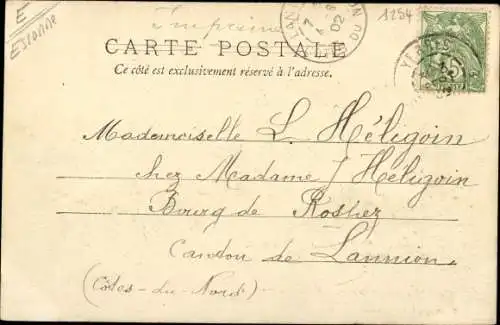 E
Essonne
Imprimé
1284
LANNION
CARTE POSTALE
Ce côté est exclusivement réservé à l'adresse.
Mademoiselle L. Héligoin
chez Madame Héligoin
Bourg de Rospez
Canton de Lannion
(Côtes-du-Nord)